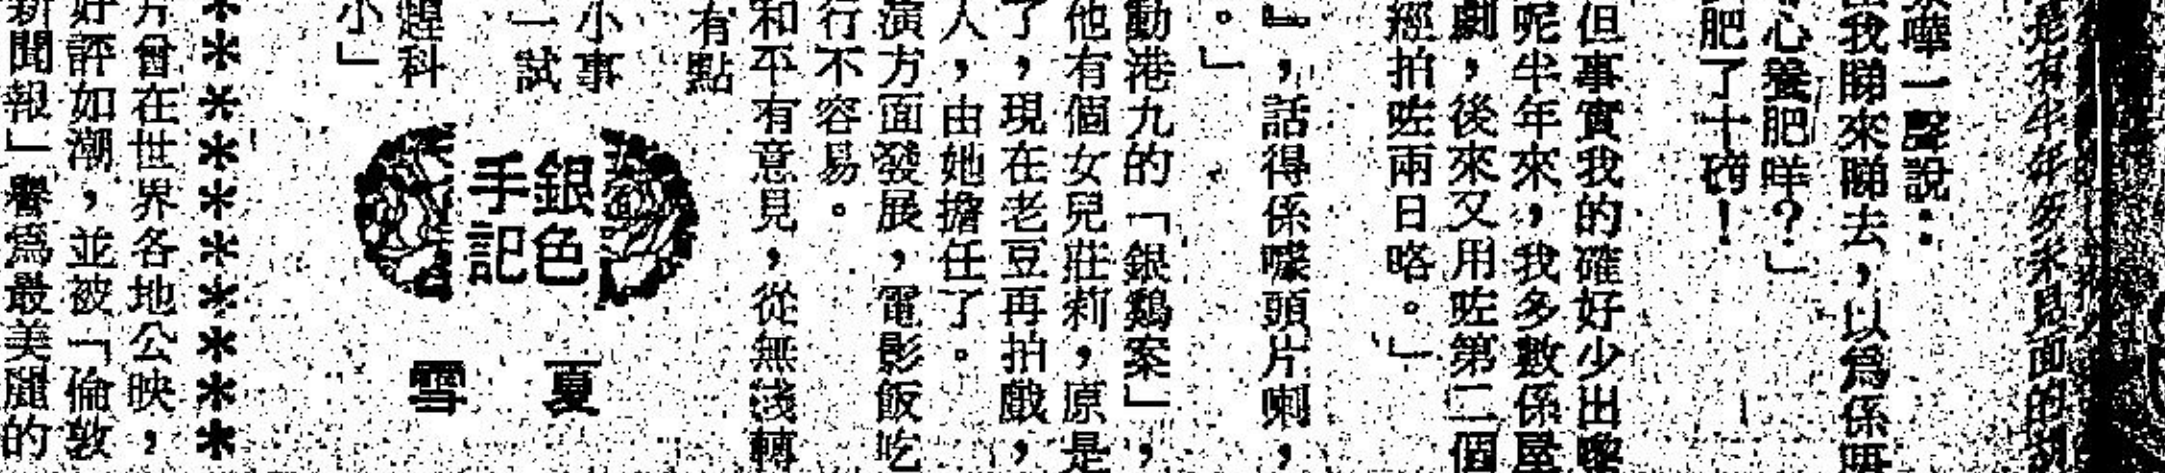 是有半年多未見面的
嘩一聲說：
我睇來睇去，以爲係
心養肥咩？」
肥了十磅！
但事實我的確好少出嚟
呢半年來，我多數係屋
劇，後來又用咗第二個
經拍咗兩日咯。」
』，話得係噱頭片喇，
。」
動港九的「銀鷄案」，
他有個女兒莊莉，原是
了，現在老豆再拍戲，
人，由她擔任了。
演方面發展，電影飯吃
行不容易。
和平有意見，從無淺轉
有點
小事
一試
銀色
手記
夏
雪
趕科
小」
＊＊＊＊＊＊＊＊＊
片曾在世界各地公映，
好評如潮，並被「倫敦
新聞報」譽爲最美麗的